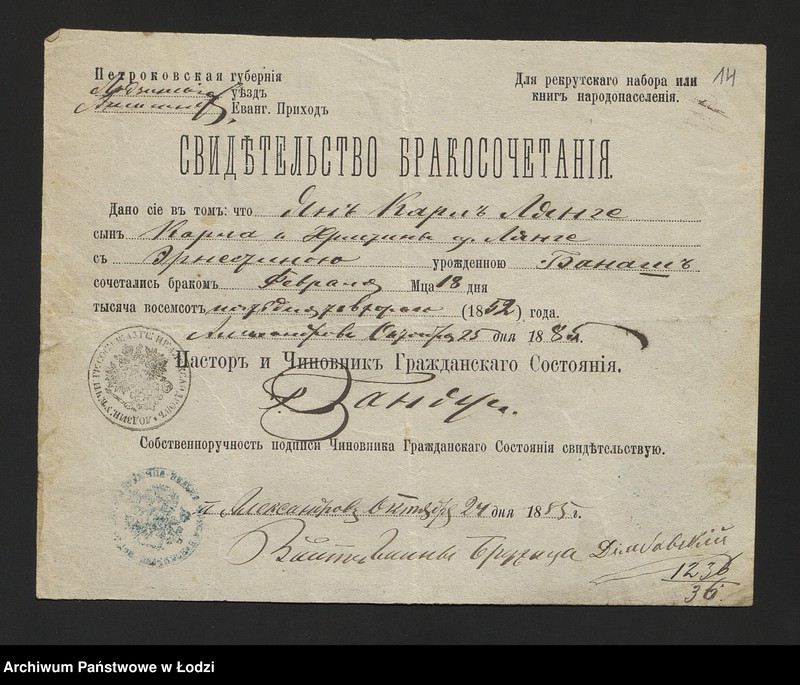 Петроковская губернія
Лодзинскій уѣздъ
Еванг. Приходъ
Для рекрутскаго набора или
книгъ народонаселенія.
14
СВИДѢТЕЛЬСТВО БРАКОСОЧЕТАНІЯ.
Дано сіе въ томъ: что Янъ Карлъ Лянге
сынъ Карла и Христины Лянге
съ Эрнестиною урожденною Банашъ
сочетались бракомъ Февраля Мца 18 дня
тысяча восемсотъ пятьдесятъ втораго (1852) года.
Александровъ Октября 25 дня 1885 г.
Пасторъ и Чиновникъ Гражданскаго Состоянія.
Собственноручность подписи Чиновника Гражданскаго Состоянія свидѣтельствую.
п. Александровъ Октября 24 дня 1885 г.
Войтъ Гмины Бружица
1236
36
Archiwum Państwowe w Łodzi